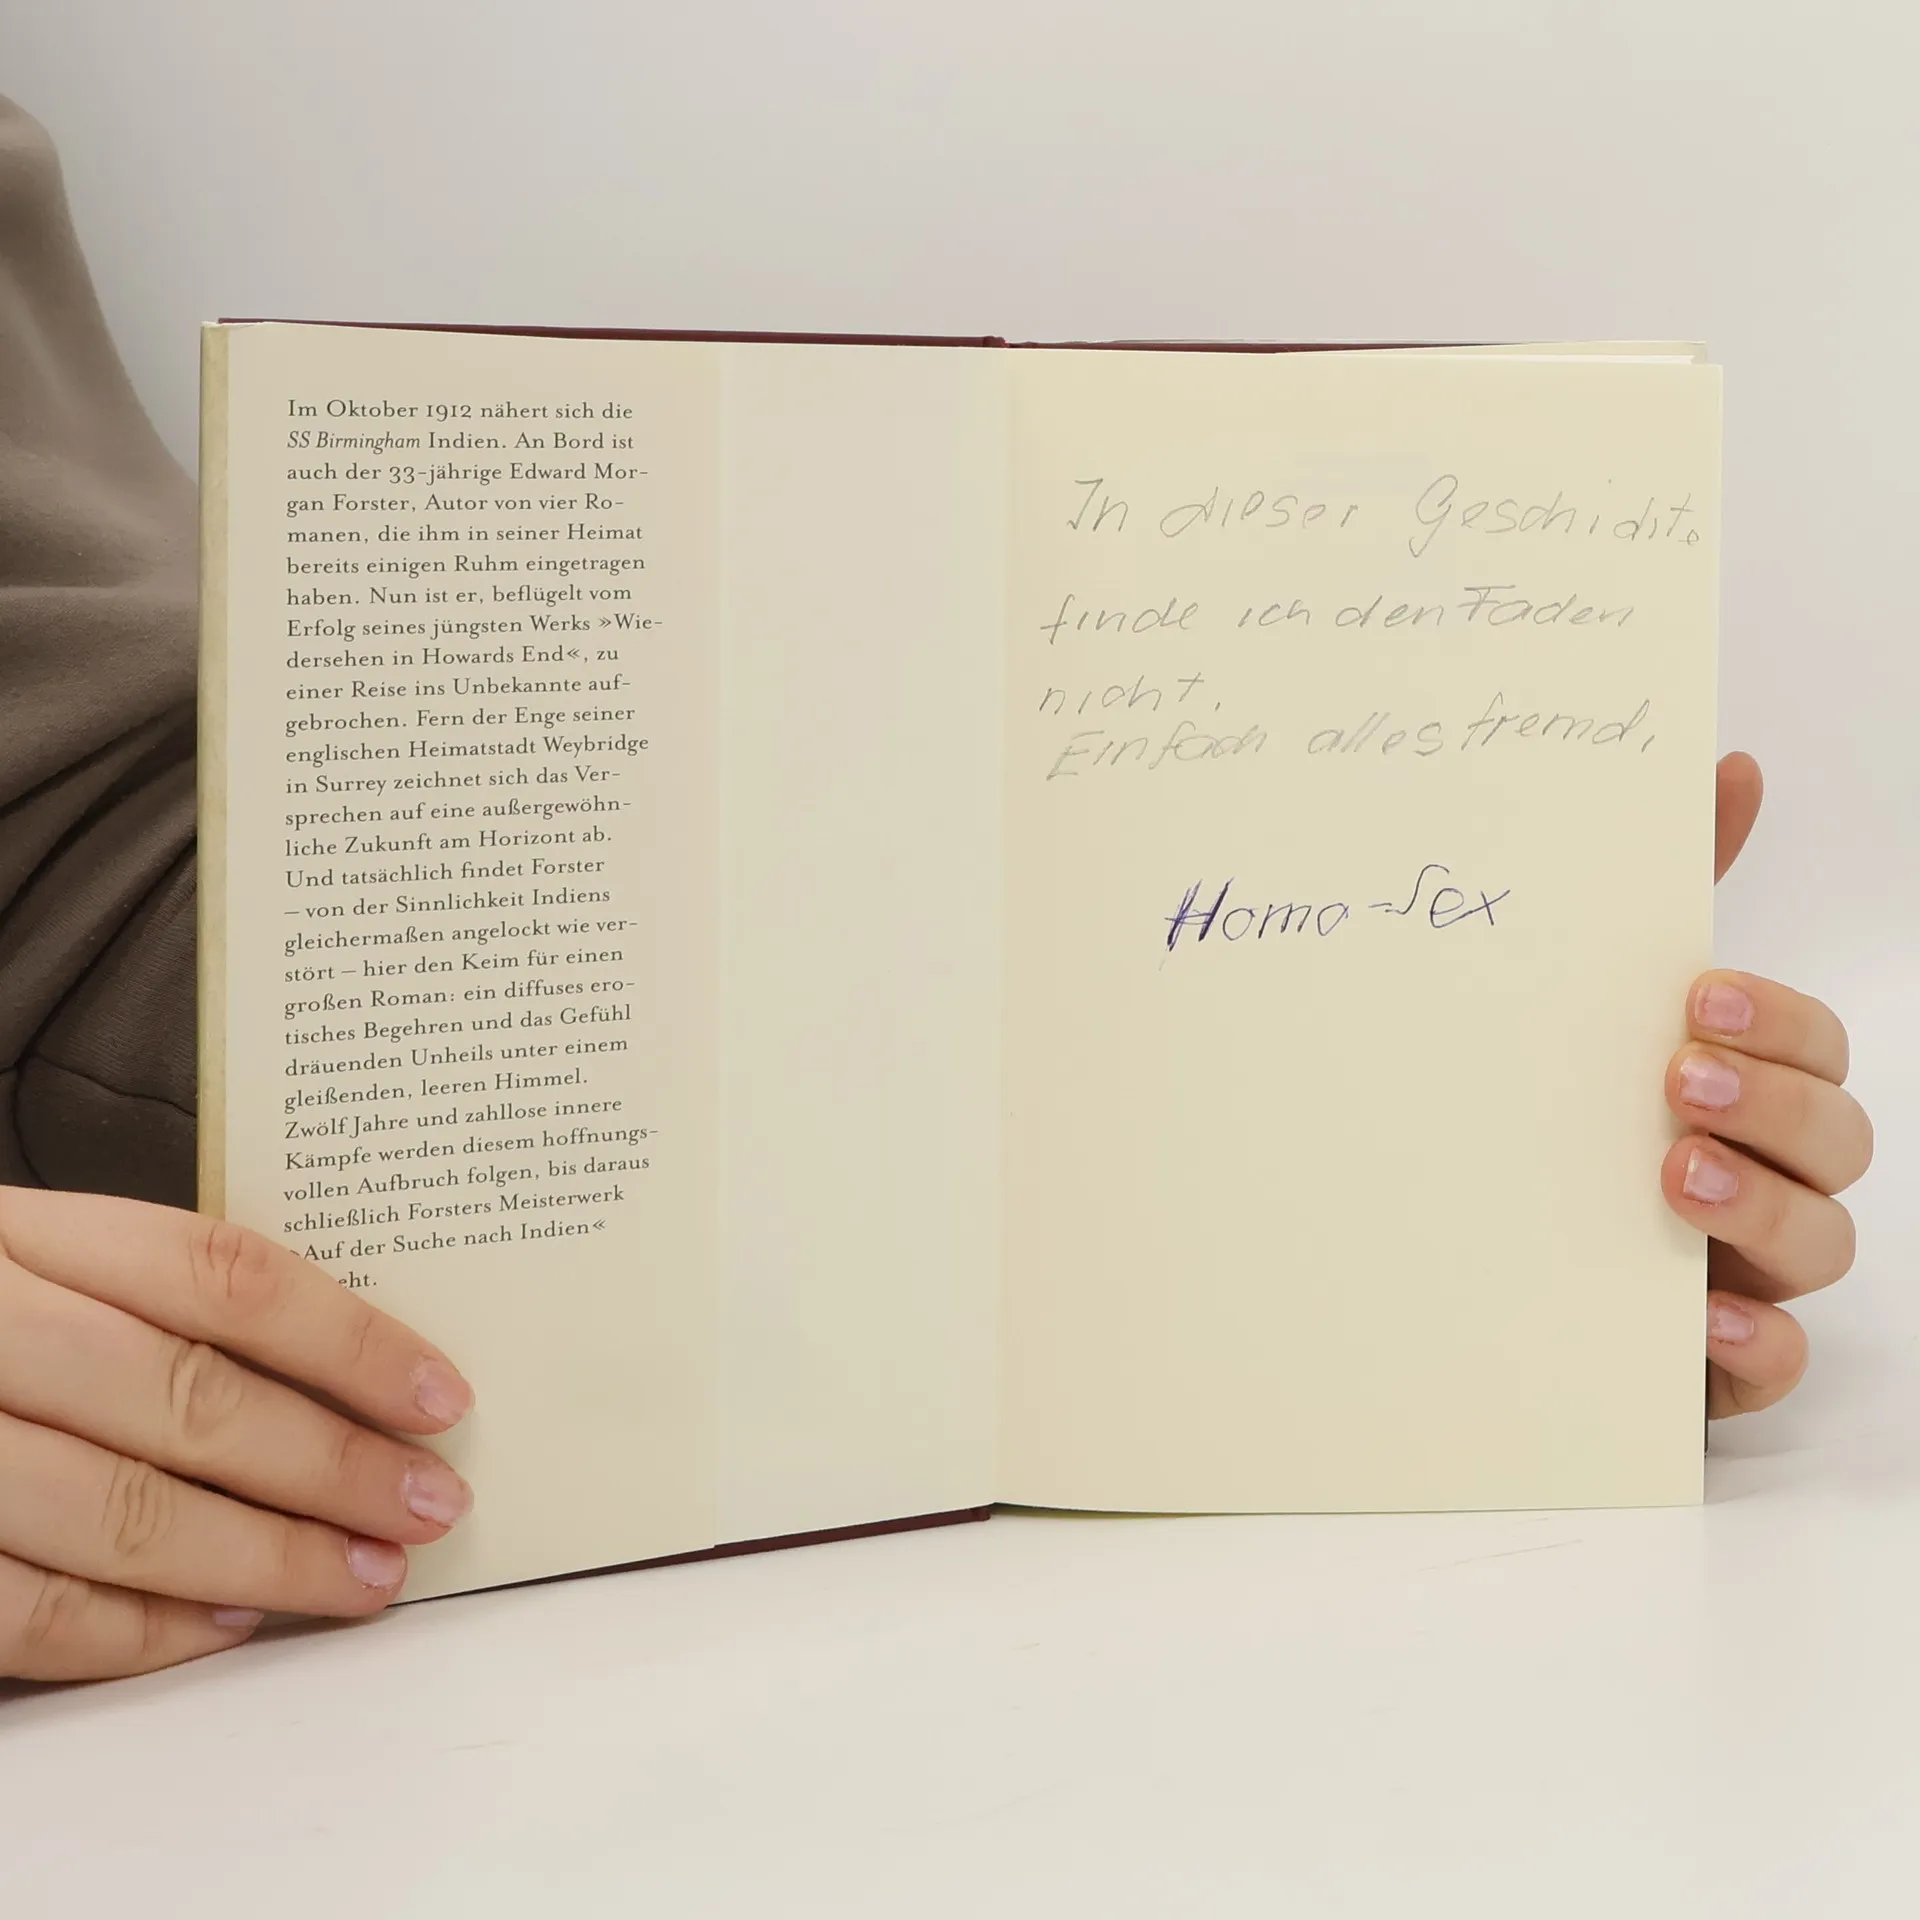 Im Oktober 1912 nähert sich die
SS Birmingham Indien. An Bord ist
auch der 33-jährige Edward Mor-
gan Forster, Autor von vier Ro-
manen, die ihm in seiner Heimat
bereits einigen Ruhm eingetragen
haben. Nun ist er, beflügelt vom
Erfolg seines jüngsten Werks »Wie-
dersehen in Howards End«, zu
einer Reise ins Unbekannte auf-
gebrochen. Fern der Enge seiner
englischen Heimatstadt Weybridge
in Surrey zeichnet sich das Ver-
sprechen auf eine außergewöhn-
liche Zukunft am Horizont ab.
Und tatsächlich findet Forster
– von der Sinnlichkeit Indiens
gleichermaßen angelockt wie ver-
stört – hier den Keim für einen
großen Roman: ein diffuses ero-
tisches Begehren und das Gefühl
dräuenden Unheils unter einem
gleißenden, leeren Himmel.
Zwölf Jahre und zahllose innere
Kämpfe werden diesem hoffnungs-
vollen Aufbruch folgen, bis daraus
schließlich Forsters Meisterwerk
»Auf der Suche nach Indien«
eht.
In dieser Geschichte
finde ich den Faden
nicht.
Einfach alles fremd.
Homo-Sex